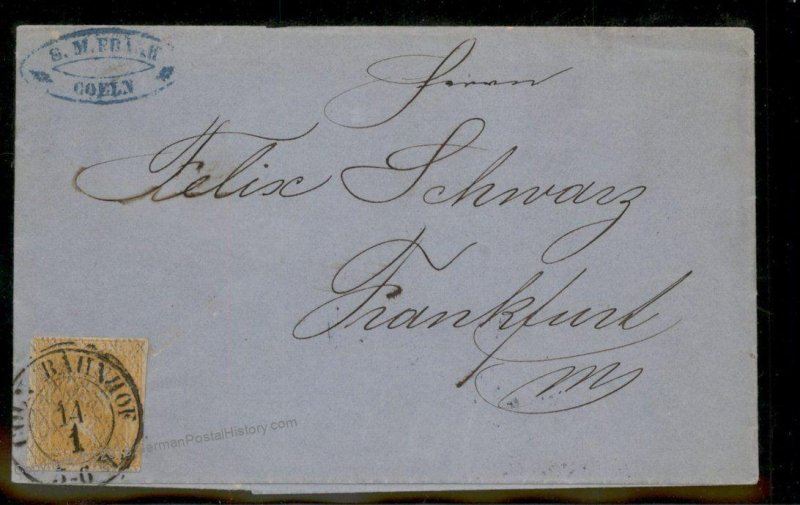 S. M. FRANK
COELN
Herrn
Felix Schwarz
Frankfurt
M
CÖLN BAHNHOF
14
1
5-6
GermanPostalHistory.com